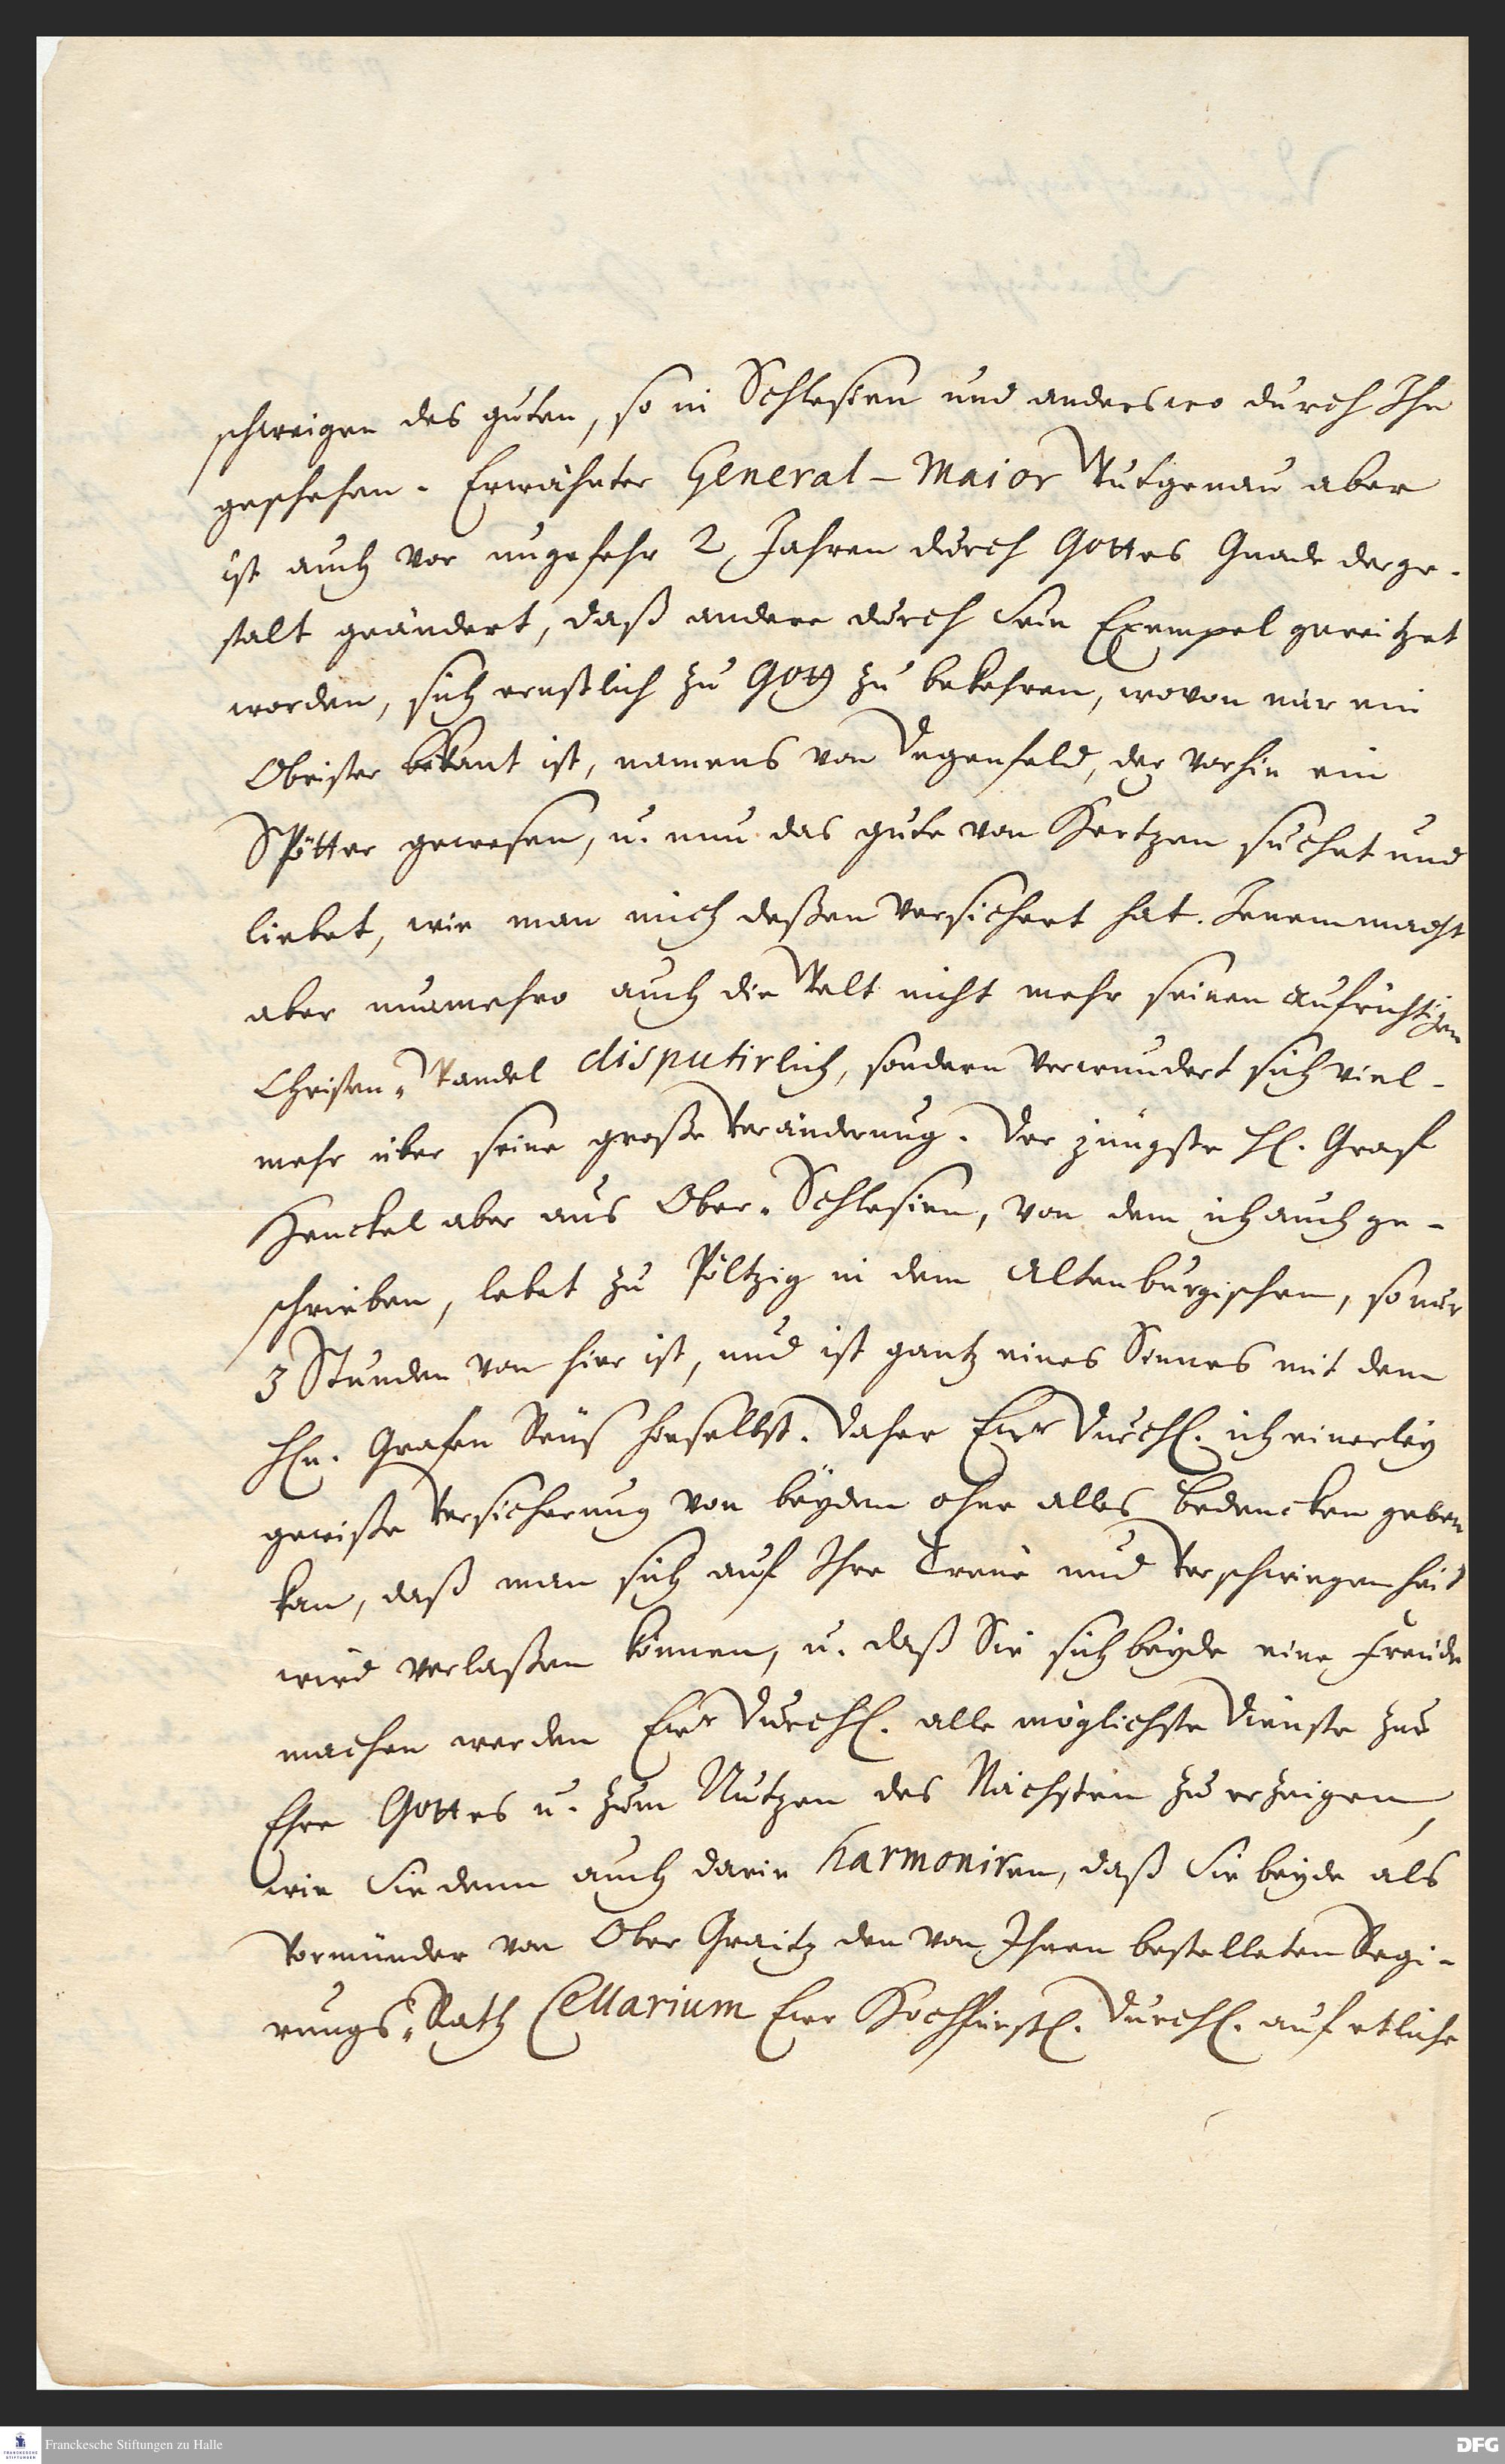 schweigen des guten, so in Schlesien und anderswo durch Ihn
geschehen. Erwähnter General-Maior Wutgenau aber
ist auch vor ungefehr 2 Jahren durch Gottes Gnade derge-
stalt geändert, daß andere durch sein Exempel gereitzet
worden, sich ernstlich zu Gott zu bekehren, wovon mir ein
Obrister bekant ist, namens von Degenfeld, der vorhin ein
Spötter gewesen, u. nun das gute von Hertzen suchet und
liebet, wie man mich deßen versichert hat. Jenem macht
aber nunmehro auch die Welt nicht mehr seinen aufrichtigen
Christen-Wandel disputirlich, sondern verwundert sich viel-
mehr über seine große Veränderung. Der jüngste H. Graf
Henckel aber aus Ober-Schlesien, von dem ich auch ge-
schrieben, lebet zu Pöltzig in dem Altenburgischen, so nur
3 Stunden von hier ist, und ist gantz eines Sinnes mit dem
Hn. Grafen Reuß hieselbst. Daher Ewr Durchl. ich einerley
gewiße Versicherung von beyden ohne alles bedencken geben
kan, daß man sich auf Ihre Treue und Verschwiegenheit
wird verlaßen können, u. daß Sie sich beyde eine Freude
machen werden Ewr Durchl. alle möglichste Dienste zur
Ehre Gottes u. zum Nutzen des Nächsten zu erzeigen,
wie Sie denn auch darin harmoniren, daß Sie beyde als
Vormünder von Ober Graitz den von Ihnen bestelleten Regi-
rungs-Rath Cellarium Ewr Hochfürstl. Durchl. auf etliche
Franckesche Stiftungen zu Halle
DFG